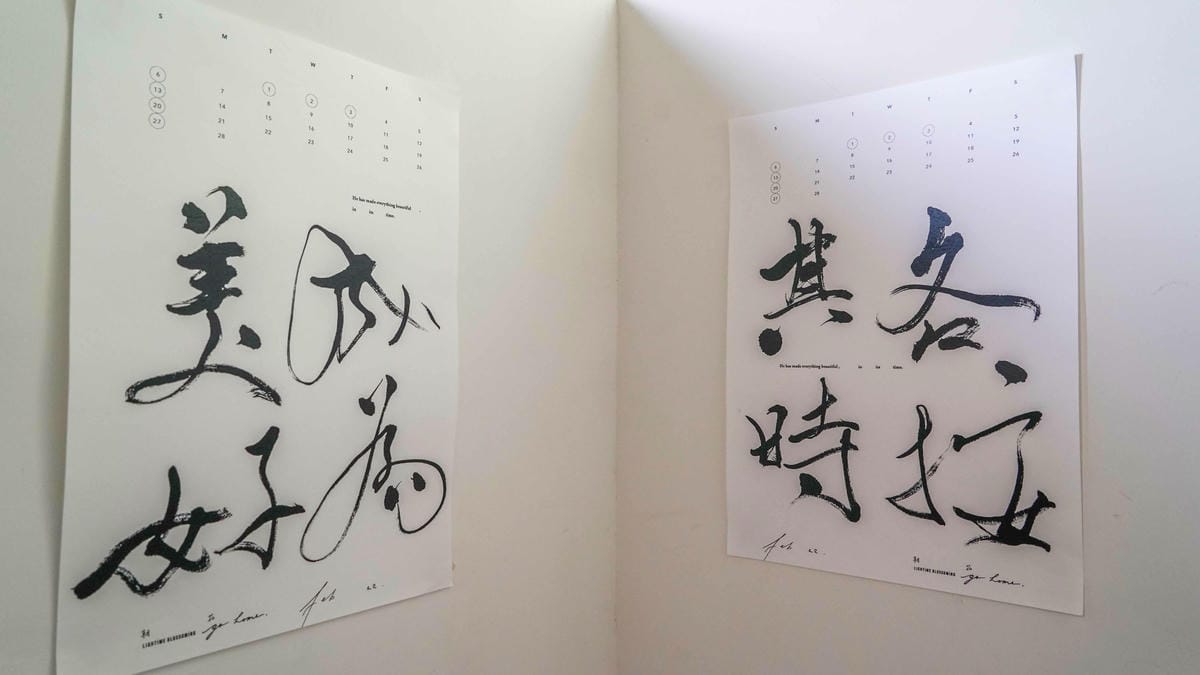 S M T W T F S
1 2 3 4 5
6 7 8 9 10 11 12
13 14 15 16 17 18 19
20 21 22 23 24 25 26
27 28
He has made everything beautiful
in its time.
成為
美好
Feb 22.
LIGHTIME BLOSSOMING
go home.
S M T W T F S
1 2 3 4 5
6 7 8 9 10 11 12
13 14 15 16 17 18 19
20 21 22 23 24 25 26
27 28
各按
其時
He has made everything beautiful , in its time.
Feb 22.
LIGHTIME BLOSSOMING
go home.